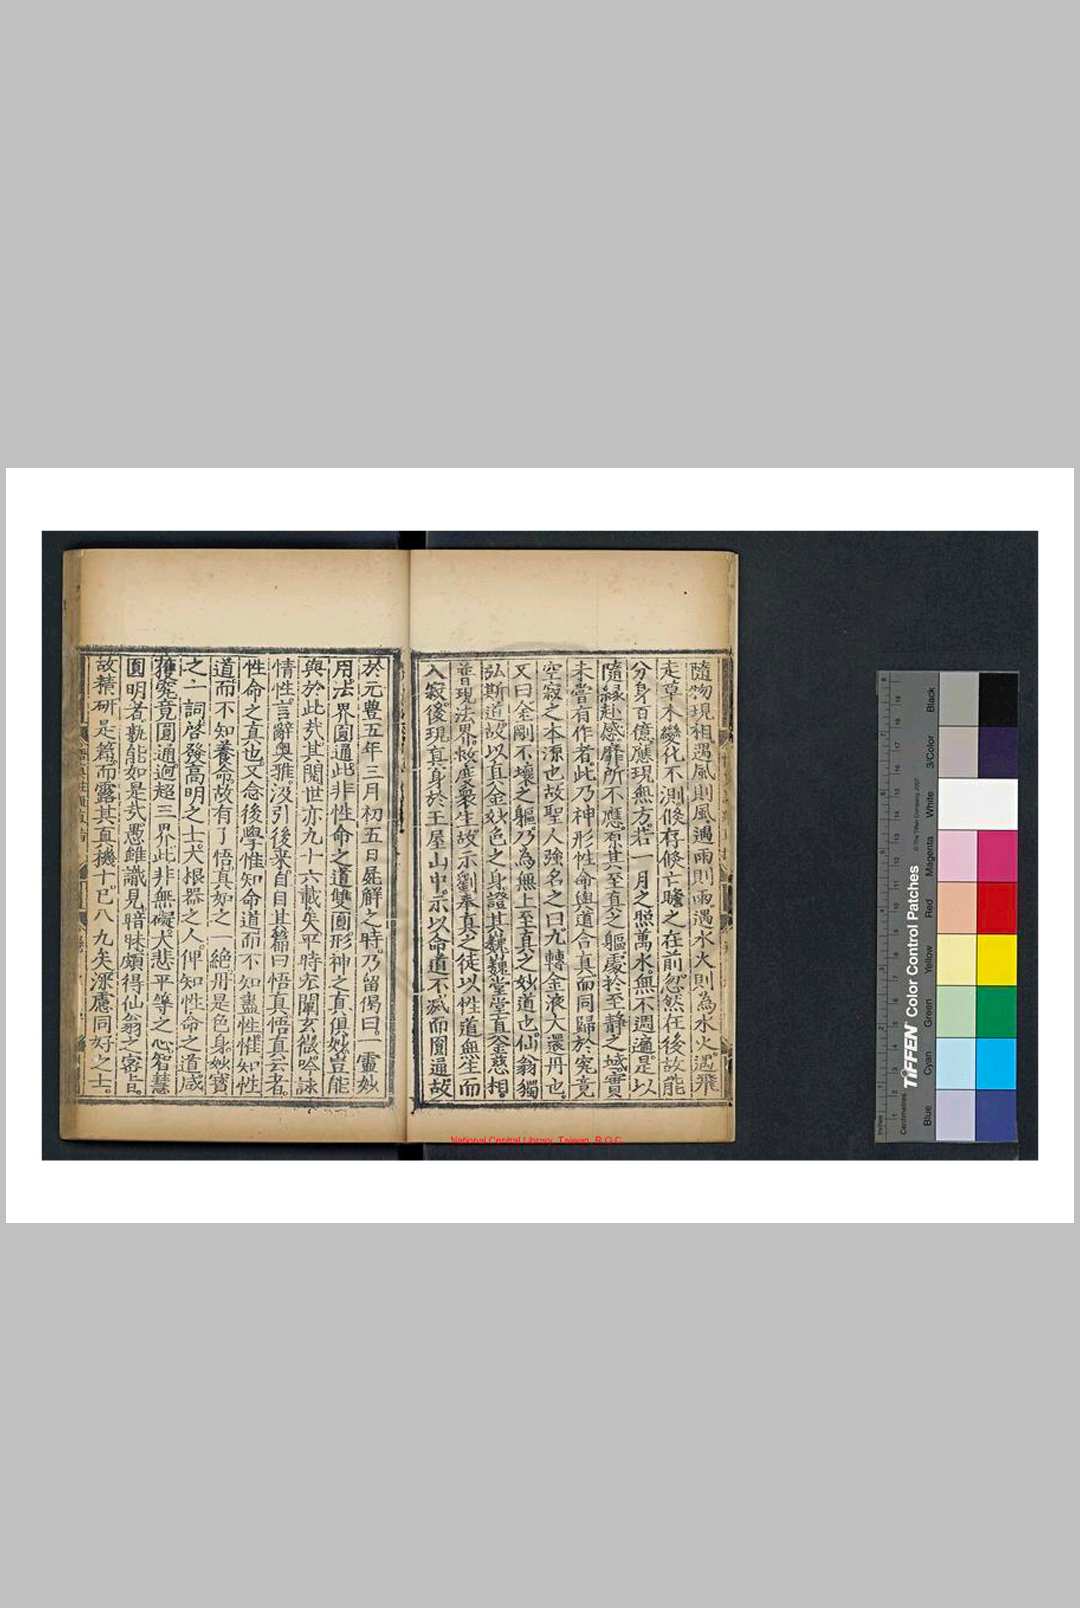 隨物現相遇風則風遇雨則雨遇水火則為水火遇飛
走草木變化不測倐存倐亡瞻之在前忽然在後故能
分身百億應現無方若一月之照萬水無不週遍是以
隨縁赴感靡所不應原其至真之軀處於至靜之域實
未嘗有作者此乃神形性命與道合真而同歸於究竟
空寂之本源也故聖人強名之曰九轉金液大還丹也
又曰金剛不壞之軀乃為無上至真之妙道也仙翁獨
弘斯道故以真金妙色之身證其巍巍堂堂直金慈相
普現法界攸度衆生故示劉奉真之徒以性道無生而
入寂後現真身於王屋山中示以命道不滅而圓通故
於元豊五年三月初五日屍解之時乃留偈曰一靈妙
用法界圓通此非性命之道雙圓形神之真俱妙豈能
與於此㢤其閱世亦九十六載矣平時宏闡玄㣲吟詠
情性言辭奥雅汲引後来自目其篇曰悟真悟真云者
性命之真也又念後學惟知命道而不知盡性惟知性
道而不知養命故有了悟真如之一絶丹是色身妙寳
之一詞啓發高明之士大根器之人俾知性命之道咸
獲究竟圓通迥超三界此非無礙大悲平等之心智慧
圓明者孰能如是㢤愚雖識見暗昧頗得仙翁之密旨
故精研是篇而露其真機十已八九矣深慮同好之士
National Central Library, Taiwan, R.O.C.
TIFFEN Color Control Patches
© The Tiffen Company, 2007
Centimetres
Inches
Blue
Cyan
Green
Yellow
Red
Magenta
White
3/Color
Black